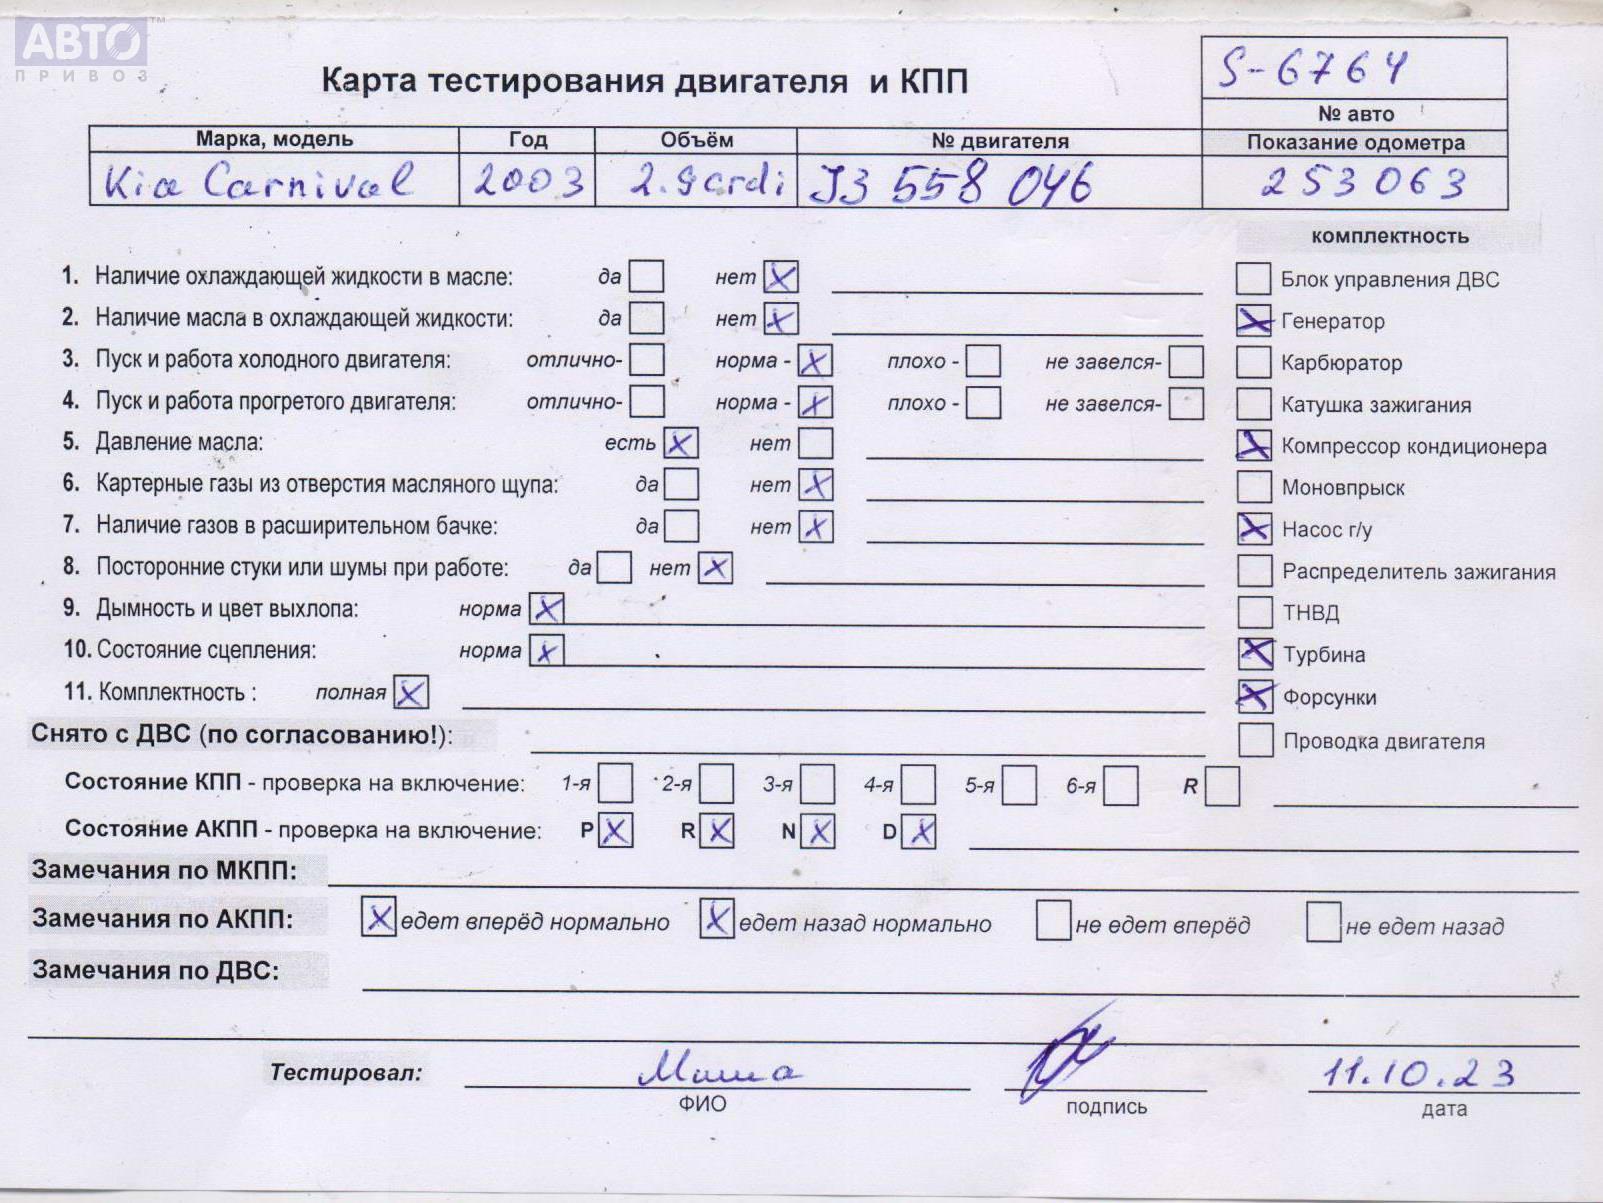 АВТО ™
ПРИВОЗ
S-6764
Карта тестирования двигателя и КПП
№ авто
Марка, модель Год Объём № двигателя Показание одометра
Kia Carnival 2003 2.9crdi J3 558 046 253063
комплектность
1. Наличие охлаждающей жидкости в масле: да нет X Блок управления ДВС
2. Наличие масла в охлаждающей жидкости: да нет X X Генератор
3. Пуск и работа холодного двигателя: отлично- норма - X плохо - не завелся- Карбюратор
4. Пуск и работа прогретого двигателя: отлично- норма - X плохо - не завелся- Катушка зажигания
5. Давление масла: есть X нет X Компрессор кондиционера
6. Картерные газы из отверстия масляного щупа: да нет X Моновпрыск
7. Наличие газов в расширительном бачке: да нет X X Насос г/у
8. Посторонние стуки или шумы при работе: да нет X Распределитель зажигания
9. Дымность и цвет выхлопа: норма X ТНВД
10. Состояние сцепления: норма X X Турбина
11. Комплектность : полная X X Форсунки
Снято с ДВС (по согласованию!): Проводка двигателя
Состояние КПП - проверка на включение: 1-я 2-я 3-я 4-я 5-я 6-я R
Состояние АКПП - проверка на включение: P X R X N X D X
Замечания по МКПП:
Замечания по АКПП: X едет вперёд нормально X едет назад нормально не едет вперёд не едет назад
Замечания по ДВС:
Тестировал: 11.10.23
ФИО подпись дата